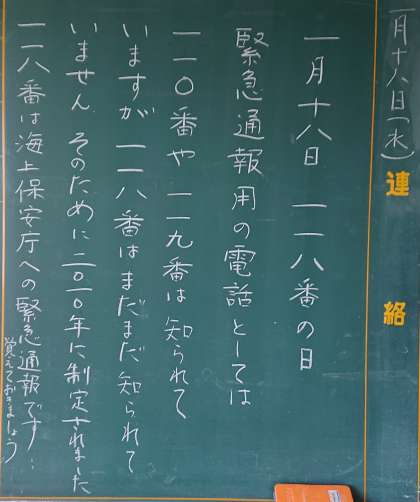 一月十八日(水)
連絡
一月十八日 一一八番の日
緊急通報用の電話としては
一一〇番や一一九番は知られて
いますが一一八番はまだまだ知られて
いません。そのために二〇一〇年に制定されました
一一八番は海上保安庁への緊急通報です!
覚えておきましょう